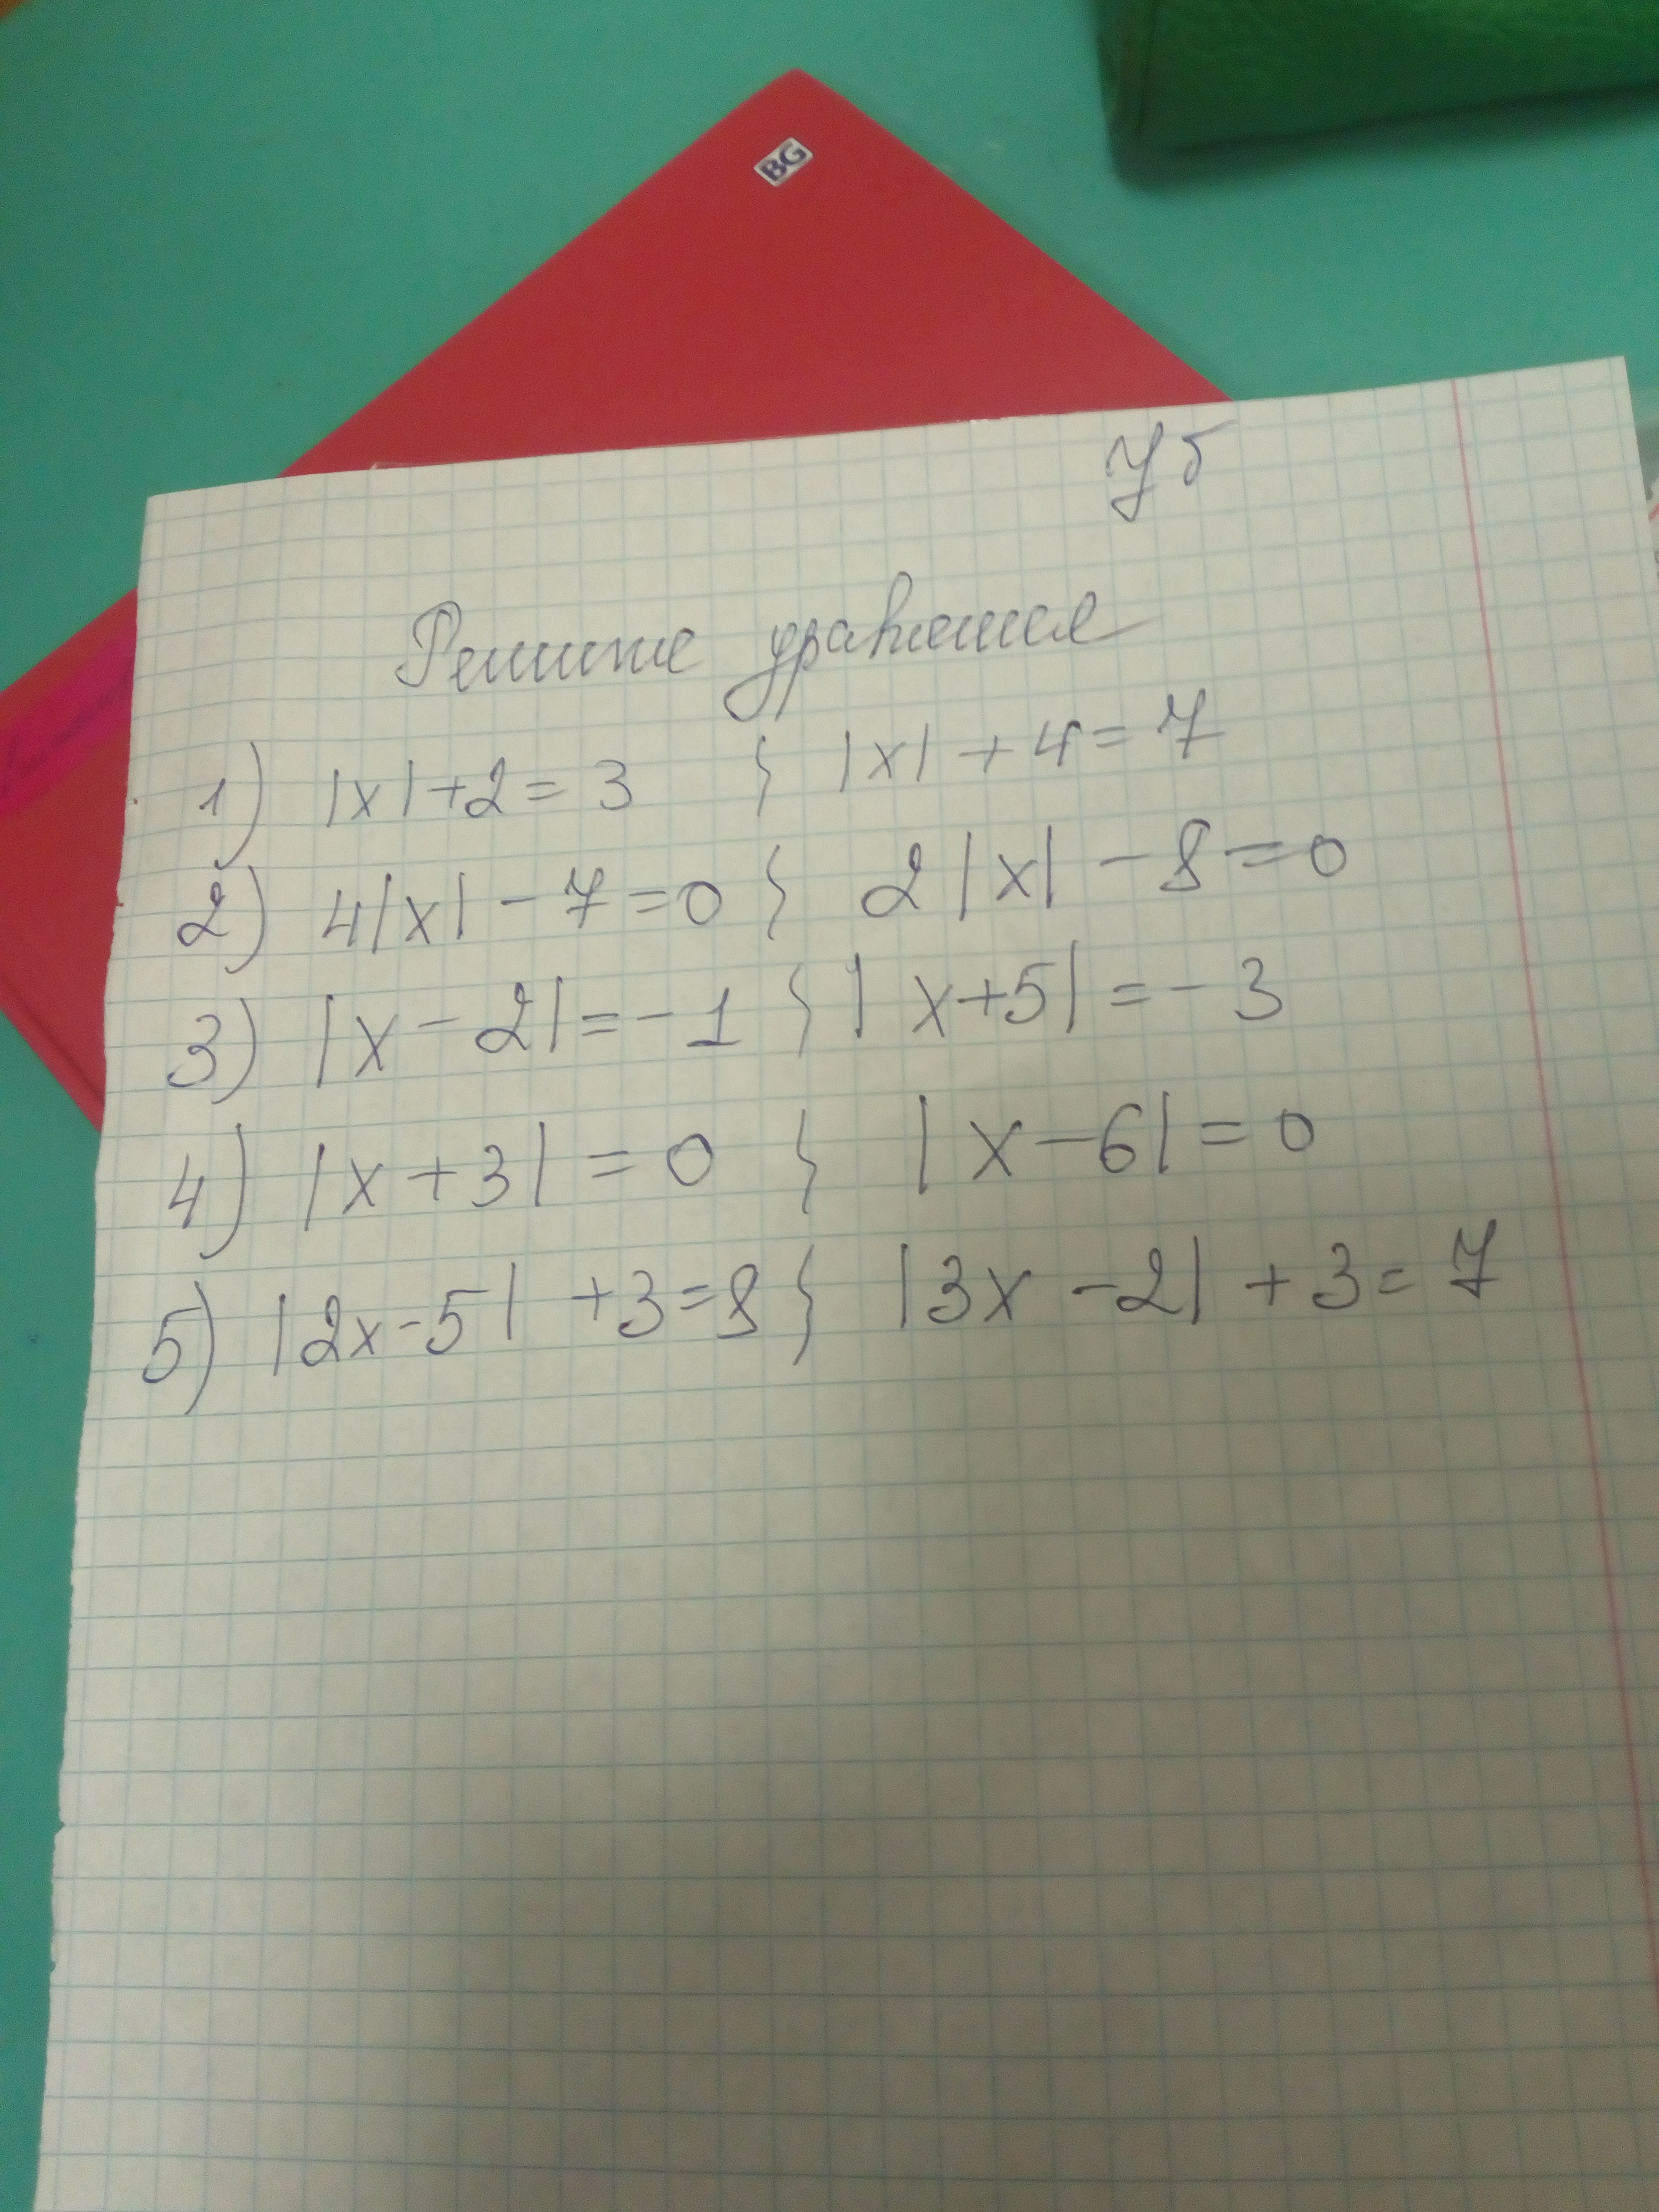 BG
У б
Решите уравнения
1) |x|+2=3 } |x|+4=7
2) 4|x|-7=0 } 2|x|-8=0
3) |x-2|=-1 } |x+5|=-3
4) |x+3|=0 } |x-6|=0
5) |2x-5|+3=8 } |3x-2|+3=7